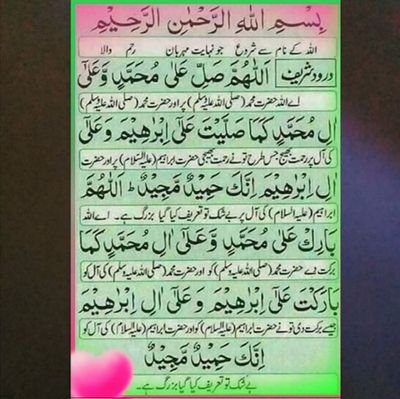 بِسْمِ اللهِ الرَّحْمٰنِ الرَّحِيْمِ
اللہ کے نام سے شروع جو نہایت مہربان رحم والا
درود شریف اَللّٰهُمَّ صَلِّ عَلٰى مُحَمَّدٍ وَّعَلٰى
اے اللہ حضرت محمد (صلی اللہ علیہ وسلم) پر اور حضرت محمد (صلی اللہ علیہ وسلم)
اٰلِ مُحَمَّدٍ كَمَا صَلَّيْتَ عَلٰى اِبْرٰهِيْمَ وَعَلٰى
کی آل پر رحمت بھیج جس طرح تو نے رحمت بھیجی حضرت ابراہیم (علیہ السلام) پر اور حضرت
اٰلِ اِبْرٰهِيْمَ اِنَّكَ حَمِيْدٌ مَّجِيْدٌ ؕ اَللّٰهُمَّ
ابراہیم (علیہ السلام) کی آل پر بے شک تو تعریف کیا گیا بزرگ ہے۔ اے اللہ
بَارِكْ عَلٰى مُحَمَّدٍ وَّعَلٰى اٰلِ مُحَمَّدٍ كَمَا
برکت دے حضرت محمد (صلی اللہ علیہ وسلم) کو اور حضرت محمد (صلی اللہ علیہ وسلم) کی آل کو
بَارَكْتَ عَلٰى اِبْرٰهِيْمَ وَ عَلٰى اٰلِ اِبْرٰهِيْمَ
جیسے برکت دی تو نے حضرت ابراہیم (علیہ السلام) کو اور حضرت ابراہیم (علیہ السلام) کی آل کو
اِنَّكَ حَمِيْدٌ مَّجِيْدٌ
بے شک تو تعریف کیا گیا بزرگ ہے۔